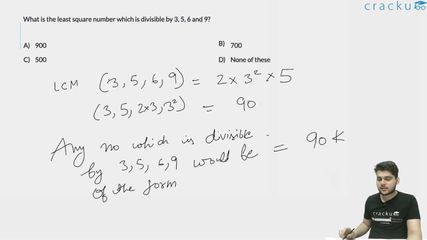 cracku
What is the least square number which is divisible by 3, 5, 6 and 9?
A) 900
B) 700
C) 500
D) None of these
LCM (3, 5, 6, 9) = 2 × 3² × 5
(3, 5, 2×3, 3²) = 90
Any no which is divisible
by 3,5, 6,9 would be = 90 K
of the form
cracku